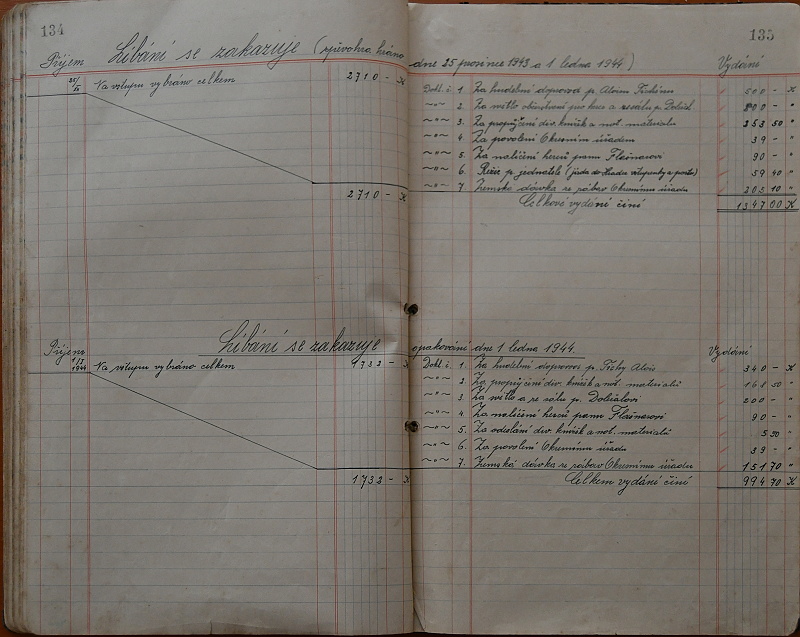 134
135
Příjem Líbání se zakazuje (zpěvohra hráno dne 25 prosince 1943 a 1 ledna 1944) Vydání
25/XII Na vstupu vybráno celkem 2710 - K
Dokl. č. 1. Za hudební doprovod p. Aloisu 500 - K
-„- 2. Za světlo p. 200 - "
-„- 3. Za propůjčení div. knížek a not. materialu 253 50 "
-„- 4. Za povolení Okresním úřadem 39 - "
-„- 5. Za nalíčení herců panu 90 - "
-„- 6. Režie p. jednatele (jízda do Hradce vstupenky a pošta) 59 40 "
-„- 7. Zemská dávka ze zábav Okresnímu úřadu 205 10 "
2710 - K
Celkové vydání činí 1347 00 K
Příjem Líbání se zakazuje opakování dne 1 ledna 1944. Vydání
1/I 1944 Na vstupu vybráno celkem 1732 - K
Dokl. č. 1. Za hudební doprovod p. Alois 340 - K
-„- 2. Za propůjčení div. knížek a not. materialů 168 50 "
-„- 3. Za světlo a za sálu p. 200 - "
-„- 4. Za nalíčení herců panu 90 - "
-„- 5. Za odeslání div. knížek a not. materialů 5 30 "
-„- 6. Za povolení Okresnímu úřadu 39 - "
-„- 7. Zemská dávka ze zábav Okresnímu úřadu 151 70 "
1732 - K
Celkem vydání činí 994 70 K